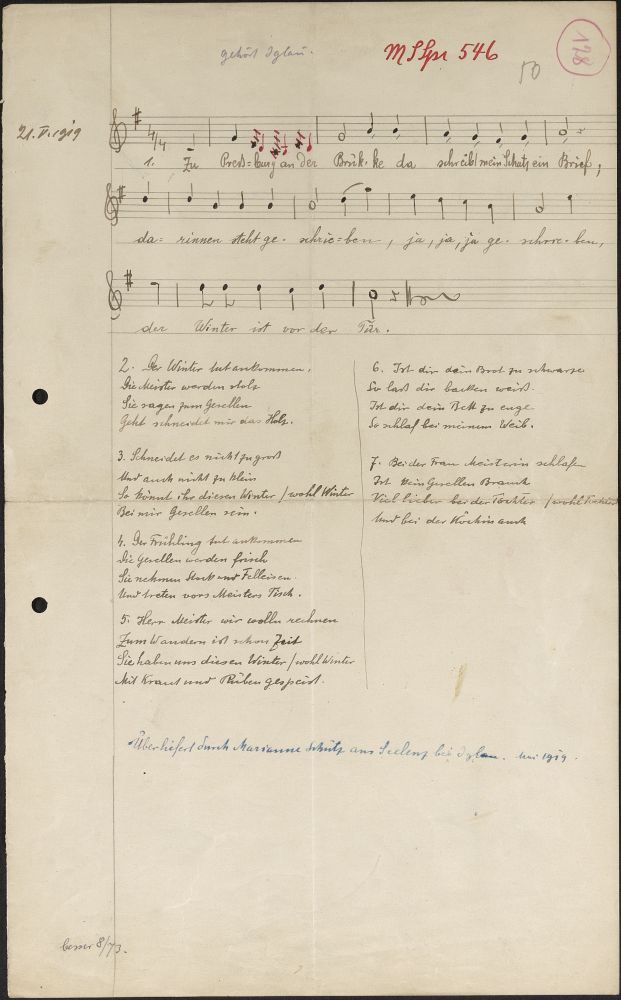 gehört Iglau.
MSSpr 546
50
178
21. V. 1919
4/4
1. Zu Preß-burg an der Brük-ke da schreibt mein Schatz ein Brief;
da-rinnen steht ge-schrie-ben, ja, ja, ja ge-schrie-ben,
der Winter ist vor der Tür.
2. Der Winter tut ankommen,
Die Meister werden stolz
Sie sagen zum Gesellen
Geht schneidet mir das Holz.
3. Schneidet es nicht zu groß
Und auch nicht zu klein
So könnt ihr diesen Winter / wohl Winter
Bei mir Gesellen sein.
4. Der Frühling tut ankommen
Die Gesellen werden frisch
Sie nehmen Stock und Felleisen
Und treten vors Meisters Tisch.
5. Herr Meister wir wolln rechnen
Zum Wandern ist schon Zeit
Sie haben uns diesen Winter / wohl Winter
Mit Kraut und Rüben gespeist.
6. Ist dir dein Brot zu schwarze
So laß dir backen weiß.
Ist dir dein Bett zu enge
So schlaf bei meinem Weib.
7. Bei der Frau Meisterin schlafen
Ist kein Gesellen Brauch
Viel lieber bei der Tochter / wohl Tochter
Und bei der Köchin auch
Überliefert durch Marianne Schütz aus Seelenz bei Iglau. Mai 1919.
besser 8/73.